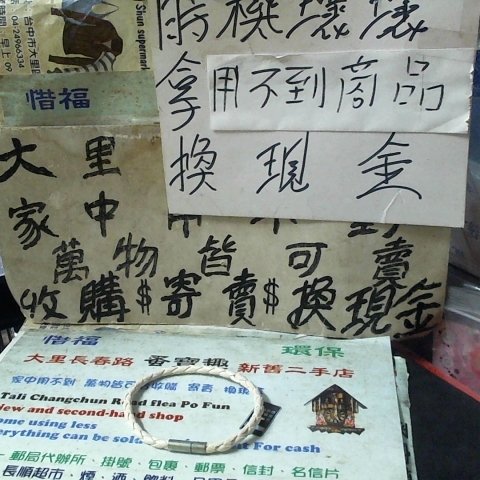 Shun supermark
台中市大里區
04-24966334
時間：早上09
手機壞壞
拿
用不到商品
換現金
惜福
大里
家中用不到
萬物皆可賣
收購$寄賣$換現金
惜福 環保
大里長春路 蚤寶趣 新舊二手店
家中用不到 萬物皆可收購 寄賣 換現
Tali Changchun Road flea Po Fun
New and second-hand shop
ome using less
erything can be sol For cash
郵局代辦所、掛號、包裹、郵票、信封、名信片
長順超市、煙、酒、飲料